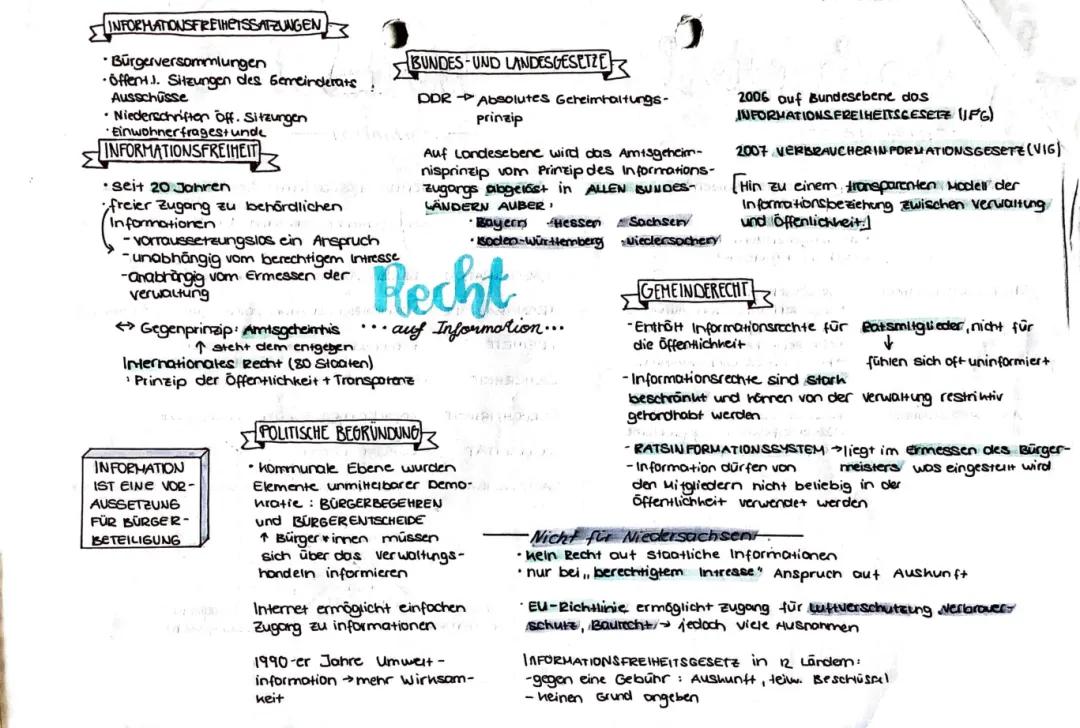 INFORMATIONSFREIHEITSSATZUNGEN
· Bürgerversammlungen
· öffentl. Sitzungen des Gemeinderats,
Ausschüsse
· Niederschriften öff. Sitzungen
· Einwohnerfragestunde
INFORMATIONSFREIHEIT
· seit 20 Jahren
· freier Zugang zu behördlichen
Informationen
- vorraussetzungslos ein Anspruch
- unabhängig vom berechtigem Intresse
- unabhängig vom Ermessen der
verwaltung
↔ Gegenprinzip: Amtsgeheimnis
↑ steht dem entgegen
Internationales Recht (80 Staaten)
: Prinzip der Öffentlichkeit + Transparenz
BUNDES- UND LANDESGESETZE
DDR → Absolutes Geheimhaltungs-
prinzip
Auf Landesebene wird das Amtsgeheim-
nisprinzip vom Prinzip des Informations-
zugangs abgelöst in ALLEN BUNDES-
LÄNDERN AUßER:
· Bayern · Hessen · Sachsen
· Baden-Württemberg · Niedersachen
2006 auf Bundesebene das
INFORMATIONSFREIHEITSGESETZ (IFG)
2007 VERBRAUCHERINFORMATIONSGESETZ (VIG)
[Hin zu einem transparenten Modell der
Informationsbeziehung zwischen Verwaltung
und Öffenlichkeit.]
Recht
... auf Information...
GEMEINDERECHT
- Enthält Informationsrechte für Ratsmitglieder, nicht für
die Öffentlichkeit
↓
fühlen sich oft uninformiert
- Informationsrechte sind stark
beschränkt und können von der Verwaltung restriktiv
gehandhabt werden
- RATSINFORMATIONSSYSTEM → liegt im ermessen des Bürger-
meisters was eingestellt wird
- Information dürfen von
den Mitgliedern nicht beliebig in der
Öffentlichkeit verwendet werden
POLITISCHE BEGRÜNDUNG
· Kommunale Ebene wurden
Elemente unmittelbarer Demo-
kratie: BÜRGERBEGEHREN
und BÜRGERENTSCHEIDE
↑ Bürger*innen müssen
sich über das Verwaltungs-
handeln informieren
Internet ermöglicht einfachen
Zugang zu informationen
1990-er Jahre Umwelt-
information → mehr Wirksam-
keit
INFORMATION
IST EINE VOR-
AUSSETZUNG
FÜR BÜRGER-
BETEILIGUNG
Nicht für Niedersachsen:
· kein Recht auf staatliche Informationen
· nur bei „berechtigtem Intresse" Anspruch auf Auskunft
· EU-Richtlinie ermöglicht zugang für
schutz, Baurecht → jedoch viele Ausnahmen
INFORMATIONSFREIHEITSGESETZ in 12 Ländern:
- gegen eine Gebühr: Auskunft, teilw.
- keinen Grund angeben